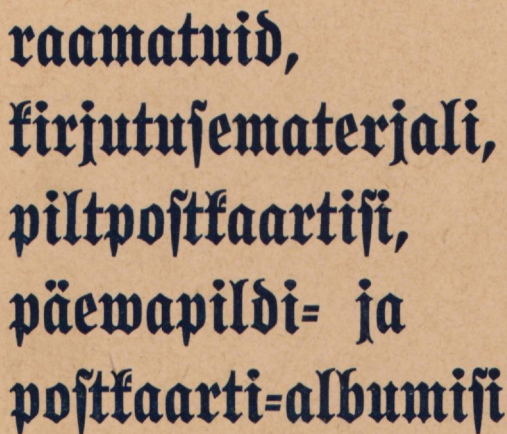 raamatuid,
kirjutuſematerjali,
piltpoſtkaartiſi,
päewapildi- ja
poſtkaarti-albumiſi